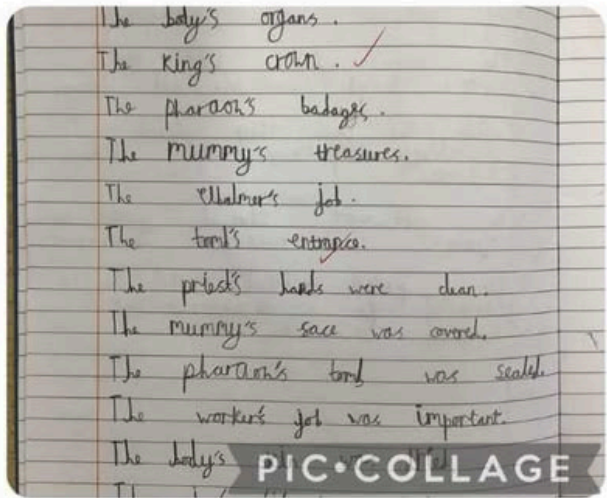 The body's organs.
The King's crown.
The pharaoh's badages.
The mummy's treasures.
The job.
The tomb's entrance.
The priest's hands were clean.
The mummy's sace was covered.
The pharaoh's tomb was sealed.
The worker's job was important.
The body's
PIC•COLLAGE